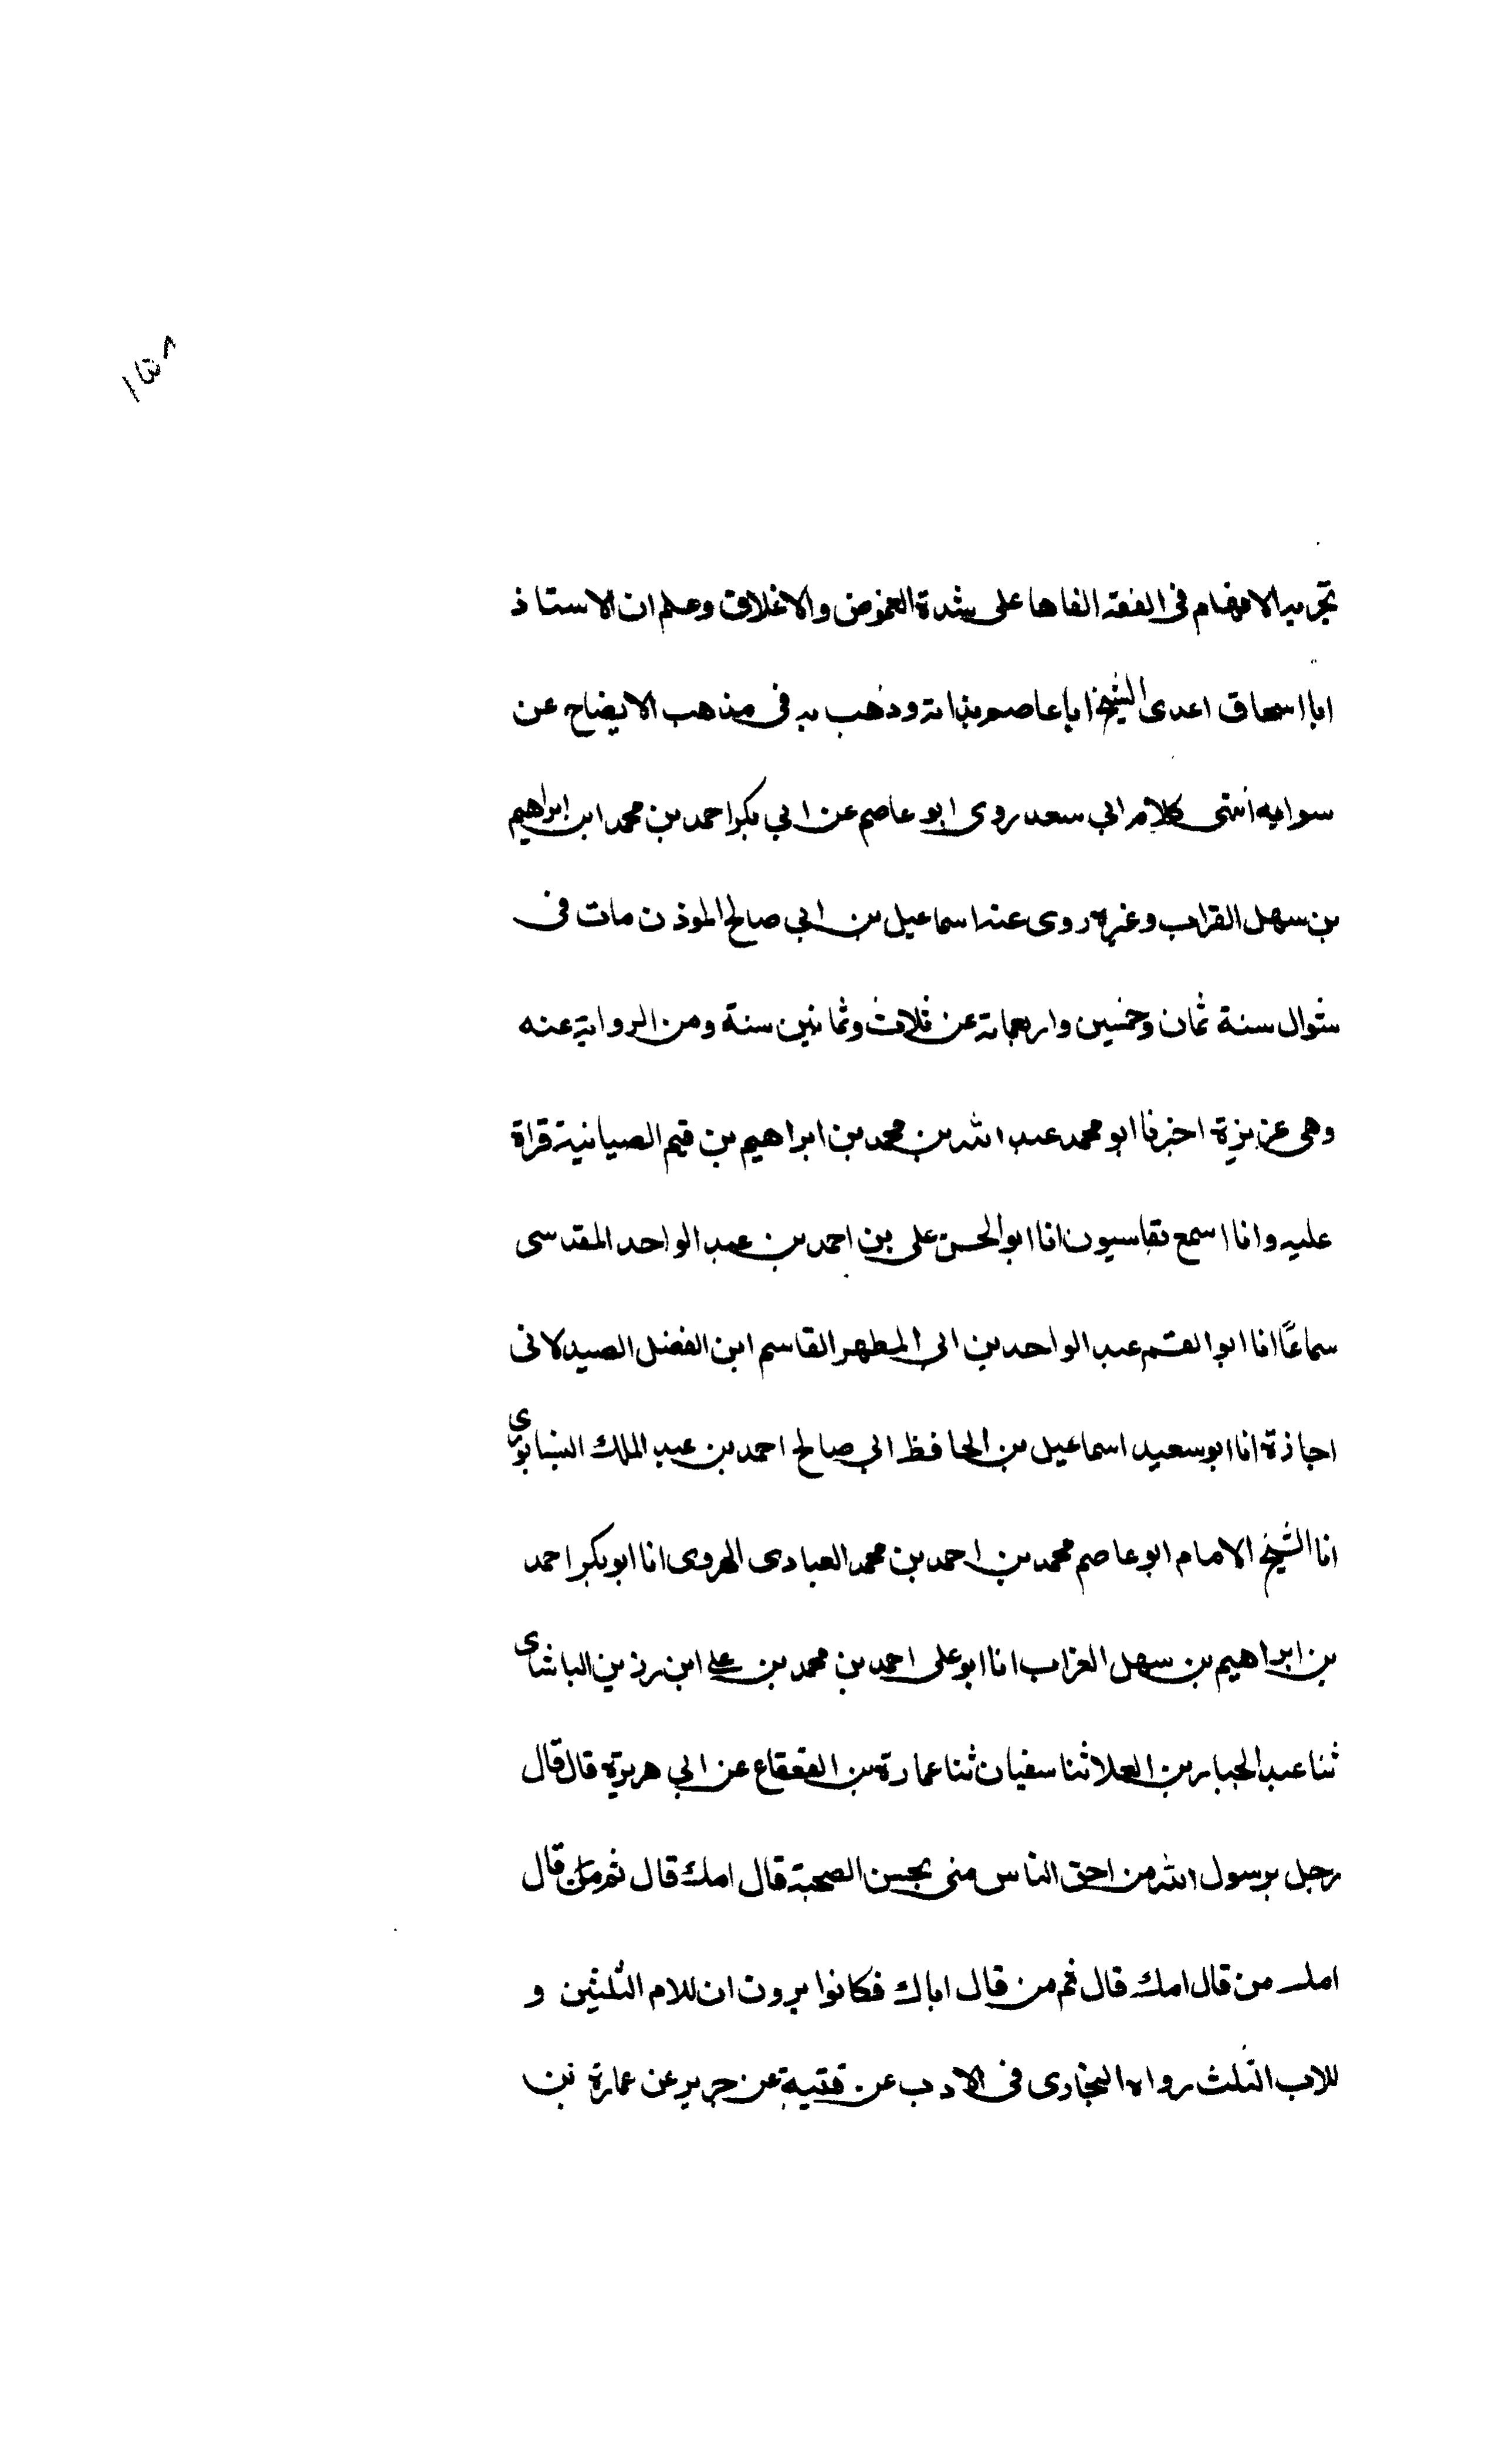 ١٥٨
تجريد الافهام فى الفقه الفاها على شدة الغموض والاغلاق وعلم ان الاستاذ
ابا اسحاق اعدى الشيخ ابا عاصم بذاته وذهب به فى مذهب الايضاح عن
سوايه انتهى كلام ابي سعد روى ابو عاصم عن ابي بكر احمد بن محمد ابن ابراهيم
بن سهل القراب وغيره روى عنه اسماعيل بن ابي صالح الموذن مات فى
شوال سنة ثمان وخمسين واربعماية عن ثلاث وثمانين سنة ومن الرواية عنه
وهى عزيزة اخبرنا ابو محمد عبد الله بن محمد بن ابراهيم بن قيم الضيائية قراة
عليه وانا اسمع بقاسيون انا ابو الحسن على بن احمد بن عبد الواحد المقدسى
سماعًا انا ابو القسم عبد الواحد بن ابى المطهر القاسم ابن الفضل الصيدلانى
اجازة انا ابو سعيد اسماعيل بن الحافظ ابي صالح احمد بن عبد الملك النيسابورى
انا الشيخ الامام ابو عاصم محمد بن احمد بن محمد العبادى الهروى انا ابو بكر احمد
بن ابراهيم بن سهل العراب انا ابو على احمد بن محمد بن على ابن رزين الباشانى
ثنا عبد الجبار بن العلا ثنا سفيان ثنا عمارة بن القعقاع عن ابي هريرة قال قال
رجل يرسول الله من احق الناس منى بحسن الصحبة قال امك قال ثم من قال
امك من قال امك قال ثم من قال اباك فكانوا يرون ان للام الثلثين و
للاب الثلث رواه البخارى فى الادب عن قتيبة عن جرير عن عمارة بن